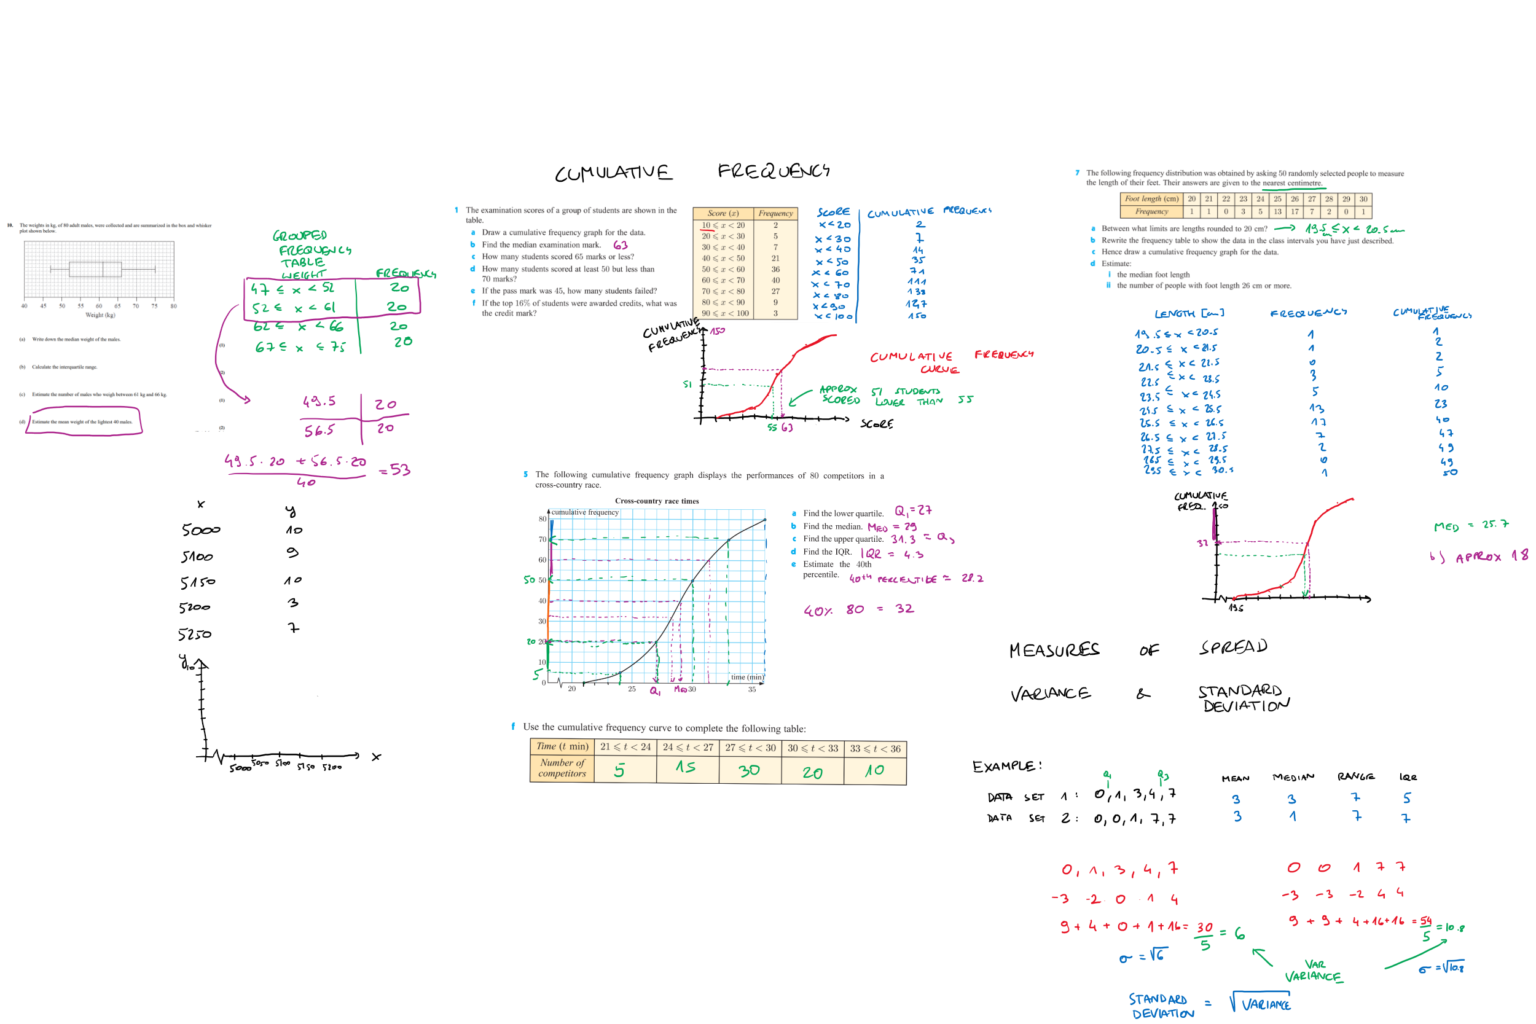 CUMULATIVE FREQUENCY
10. The weights in kg, of 80 adult males, were collected and are summarized in the box and whisker
plot shown below.
40 45 50 55 60 65 70 75 80
Weight (kg)
(a) Write down the median weight of the males.
(1)
(b) Calculate the interquartile range.
(c) Estimate the number of males who weigh between 61 kg and 66 kg.
(1)
(d) Estimate the mean weight of the lightest 40 males.
(2)
GROUPED
FREQUENCY
TABLE
WEIGHT FREQUENCY
47 ≤ x < 52 20
52 ≤ x < 61 20
62 ≤ x < 66 20
67 ≤ x ≤ 75 20
49.5 20
56.5 20
49.5 · 20 + 56.5 · 20 = 53
40
x y
5000 10
5100 9
5150 10
5200 3
5250 7
y
10
5000 5050 5100 5150 5200 x
1 The examination scores of a group of students are shown in the
table.
a Draw a cumulative frequency graph for the data.
b Find the median examination mark. 63
c How many students scored 65 marks or less?
d How many students scored at least 50 but less than
70 marks?
e If the pass mark was 45, how many students failed?
f If the top 16% of students were awarded credits, what was
the credit mark?
Score (x) Frequency
10 ⩽ x < 20 2
20 ⩽ x < 30 5
30 ⩽ x < 40 7
40 ⩽ x < 50 21
50 ⩽ x < 60 36
60 ⩽ x < 70 40
70 ⩽ x < 80 27
80 ⩽ x < 90 9
90 ⩽ x < 100 3
SCORE CUMULATIVE FREQUENCY
x < 20 2
x < 30 7
x < 40 14
x < 50 35
x < 60 71
x < 70 111
x < 80 138
x < 90 147
x < 100 150
CUMULATIVE
FREQUENCY
150
51
55 63
SCORE
CUMULATIVE FREQUENCY
CURVE
APPROX 51 STUDENTS
SCORED LOWER THAN 55
5 The following cumulative frequency graph displays the performances of 80 competitors in a
cross-country race.
Cross-country race times
cumulative frequency
80
70
60
50 50
40
30
20 20
10
5
0
20 25 30 35
time (min)
Q₁ MED
a Find the lower quartile. Q₁ = 27
b Find the median. MED = 29
c Find the upper quartile. 31.3 = Q₃
d Find the IQR. IQR = 4.3
e Estimate the 40th
percentile. 40th PERCENTILE = 28.2
40% 80 = 32
f Use the cumulative frequency curve to complete the following table:
Time (t min) 21 ⩽ t < 24 24 ⩽ t < 27 27 ⩽ t < 30 30 ⩽ t < 33 33 ⩽ t < 36
Number of
competitors 5 15 30 20 10
7 The following frequency distribution was obtained by asking 50 randomly selected people to measure
the length of their feet. Their answers are given to the nearest centimetre.
Foot length (cm) 20 21 22 23 24 25 26 27 28 29 30
Frequency 1 1 0 3 5 13 17 7 2 0 1
a Between what limits are lengths rounded to 20 cm? → 19.5 ≤ x < 20.5 cm
b Rewrite the frequency table to show the data in the class intervals you have just described.
c Hence draw a cumulative frequency graph for the data.
d Estimate:
i the median foot length
ii the number of people with foot length 26 cm or more.
LENGTH [cm] FREQUENCY CUMULATIVE FREQUENCY
19.5 ≤ x < 20.5 1 1
20.5 ≤ x < 21.5 1 2
21.5 ≤ x < 22.5 0 2
22.5 ≤ x < 23.5 3 5
23.5 ≤ x < 24.5 5 10
24.5 ≤ x < 25.5 13 23
25.5 ≤ x < 26.5 17 40
26.5 ≤ x < 27.5 7 47
27.5 ≤ x < 28.5 2 49
28.5 ≤ x < 29.5 0 49
29.5 ≤ x < 30.5 1 50
CUMULATIVE
FREQ. 50
32
19.5
MED = 25.7
b) APPROX 18
MEASURES OF SPREAD
VARIANCE & STANDARD
DEVIATION
EXAMPLE:
Q₁ Q₃
MEAN MEDIAN RANGE IQR
DATA SET 1: 0, 1, 3, 4, 7 3 3 7 5
DATA SET 2: 0, 0, 1, 7, 7 3 1 7 7
0, 1, 3, 4, 7
-3 -2 0 1 4
9 + 4 + 0 + 1 + 16 = 30
5 = 6
σ = √6
0 0 1 7 7
-3 -3 -2 4 4
9 + 9 + 4 + 16 + 16 = 54
5 = 10.8
σ = √10.8
VAR
VARIANCE
STANDARD
DEVIATION = √VARIANCE